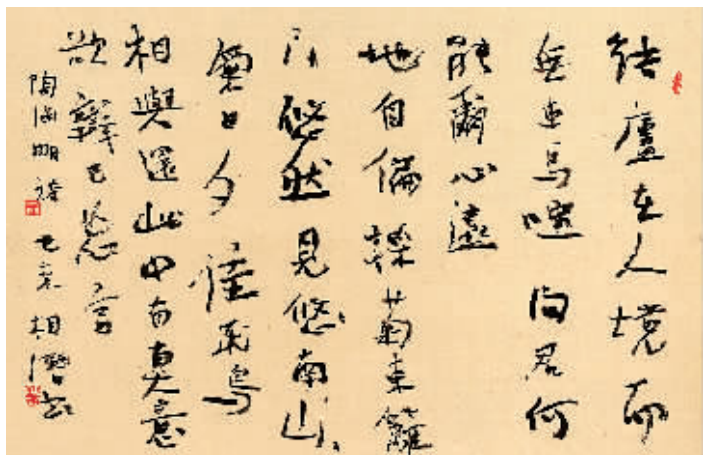 結廬在人境而
無車馬喧問君何
能爾心遠
地自偏採菊東籬
下悠然見悠南山、
氣日夕佳飛鳥
相與還此中有真意
欲辯已忘言
陶淵明詩 相書